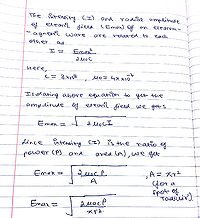 The intensity (I) and radio amplitude
of electric field (Emax) of an electrom-
-agnetic wave are related to each
other as
I = Emax²
2μ₀c
Here,
c = 3x10⁸ , μ₀ = 4πx10⁻⁷
Isolating above equation to get the
amplitude of electric field we get:
Emax = √2μ₀cI
Since intensity (I) is the ratio of
power (P) and area (A), we get
Emax = √2μ₀cP
A
, A = πr²
(for a
spot of
radius(r))
Emax = √2μ₀cP
πr²